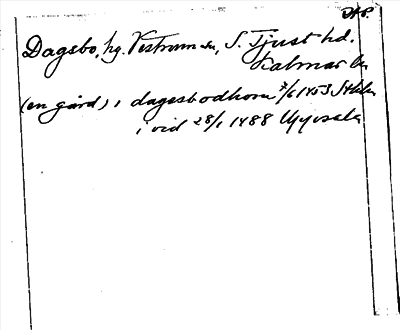 Dagsbo, hg. Vestrum sn, S. Tjust hd.
Kalmar län
(en gård) i dagsbodhom 7/6 1453 Sthlm
i vid 28/1 1488 Uppsala